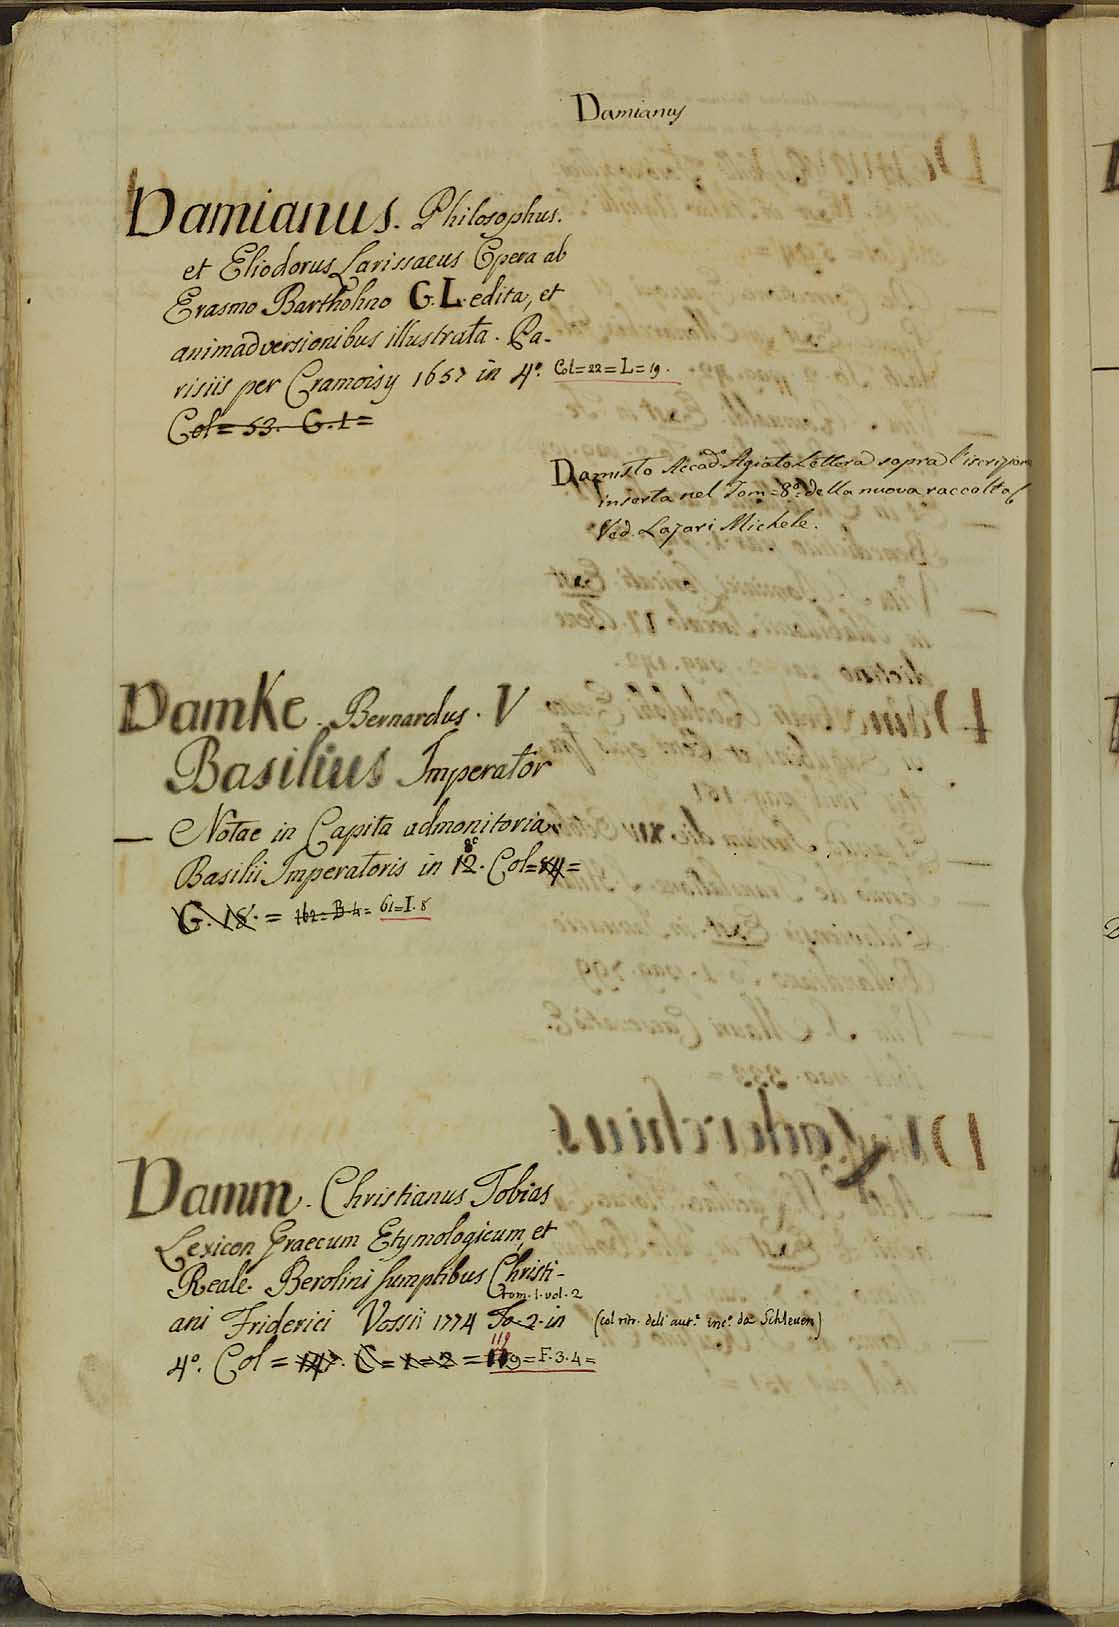 Damianus
Damianus. Philosophus.
et Eliodorus Larissaeus Opera ab
Erasmo Bartholino G. L. edita, et
animadversionibus illustrata. Pa-
risiis per Cramoisy 1657 in 4º. Col = 22 = L = 19.
Col = 53. G. 1 =
Damisto Accadº Agiato Lettera sopra l'iscrizione
inserta nel Tom = 8º della nuova raccolta
Ved. Lazari Michele.
Damke. Bernardus. V
Basilius Imperator
— Notae in Capita admonitoria
Basilii Imperatoris in 12. Col = 84 =
8º
G. 18. = 162 = B 4 = 61 = I. 8
Damm. Christianus Tobias
Lexicon Graecum Etymologicum, et
Reale. Berolini sumptibus Christi-
tom. 1. vol. 2
ani Friderici Vossii 1774 To. 2. in (col ritr. dell' aut.e inc.º da Schleuen)
119
4º. Col = 147. C = 1 = 2 = 119 = F. 3. 4 =